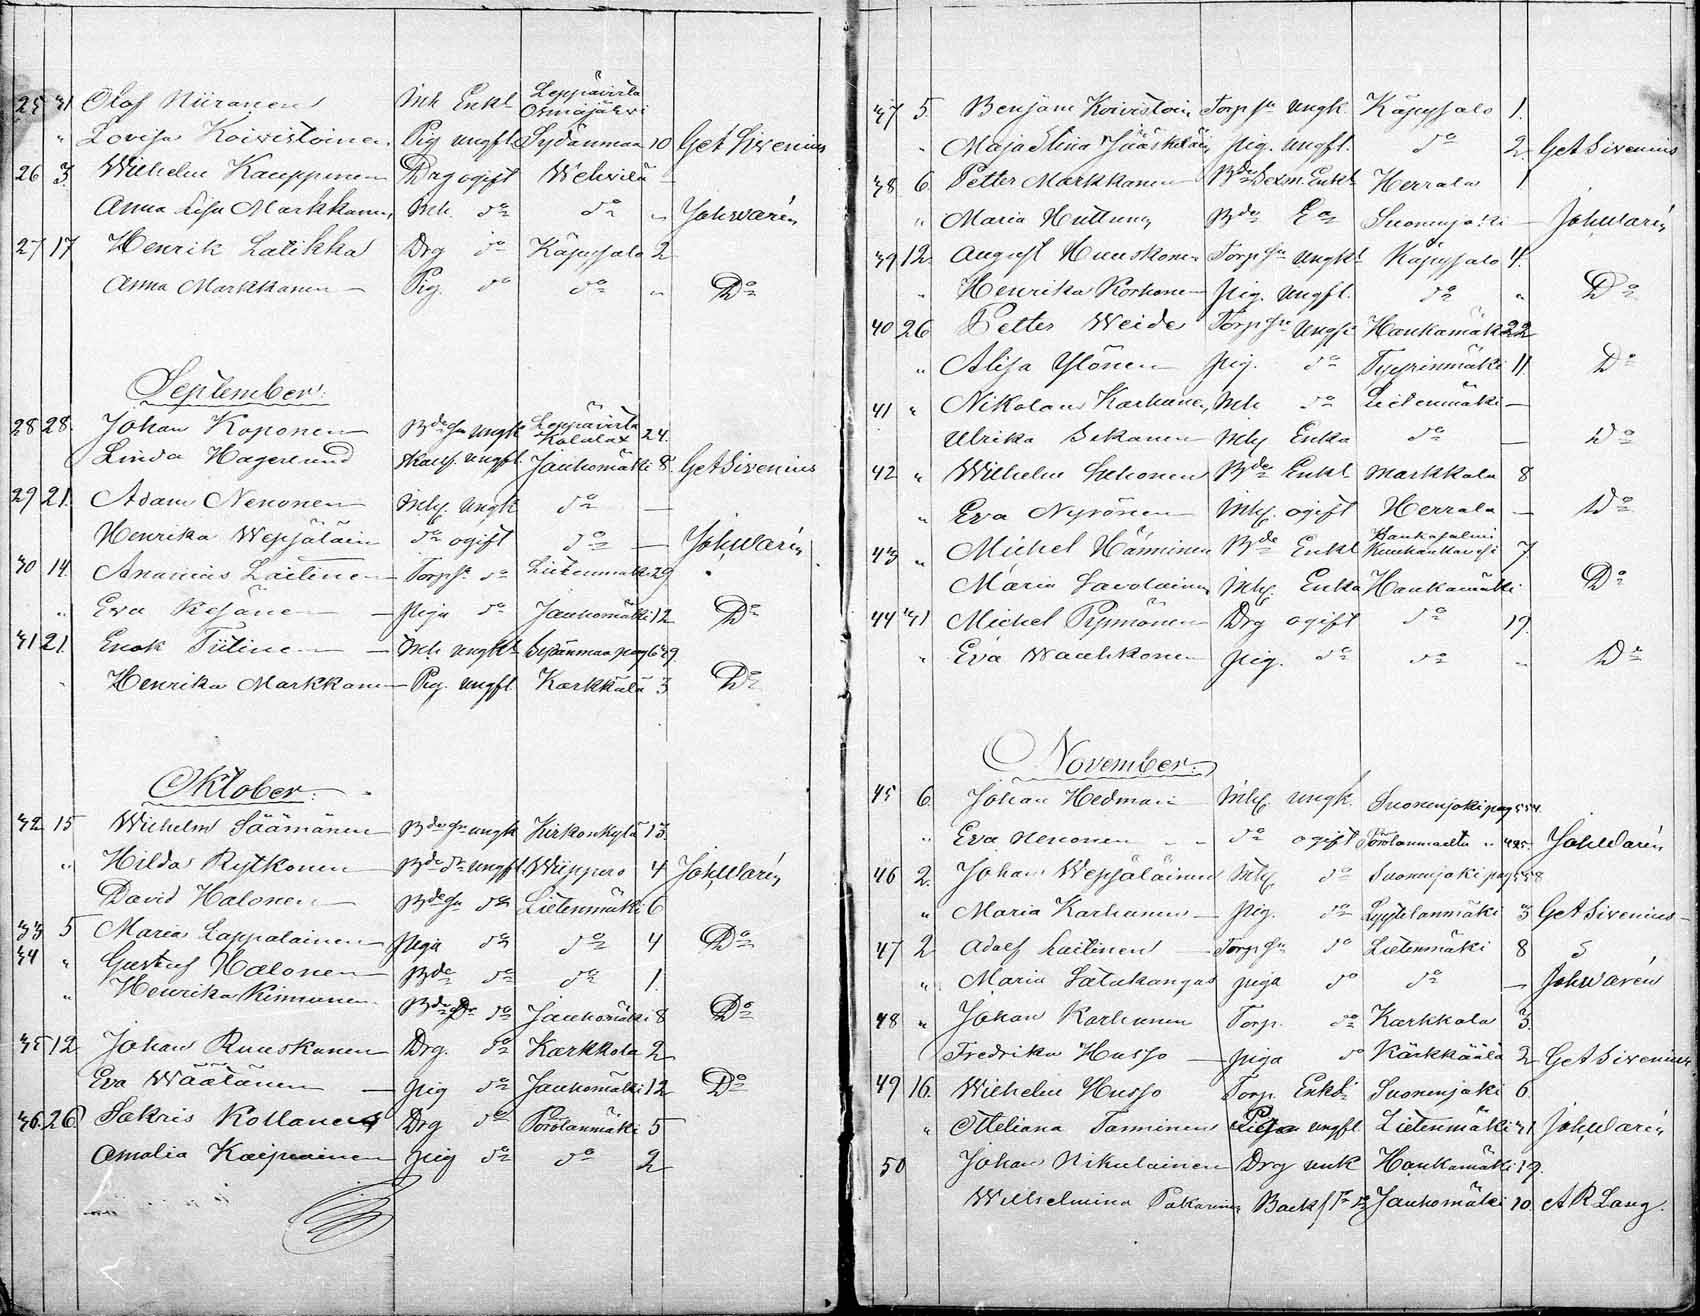 25 31 Olof Niiranen Inh Enkl Leppävirta Osmajärvi
" Lovisa Koivistoinen Pig ungfl Sydänmaa 10 GetA Sirenius
26 3 Wilhelm Kauppinen Drg ogift Wehvilä —
Anna Lisa Markkanen Inh. do do " Joh Warén
27 17 Henrik Latikka Drg do Käpysalo 2
Anna Markkanen — Pig. do do " Do
September.
28 28. Johan Koponen — Bdeson ungk Leppävirta Kotalax 24.
Linda Hagerlund ungfl. Jauhomäki 8 GetA Sirenius
29 21. Adam Nenonen Inhs. ungk do —
Henrika Wepsäläin do ogift do — Joh Warén
30 14. Ananias Laitinen — Torps. do Lietenmäki 29
" Eva Kejänen — piga do Jauhomäki 12 Do
31 21. Enok Tiitinen — Inh. ungkl Sydänmaa pag 629
" Henrika Markkanen — Pig. ungfl Karkkala 3 Do
Oktober.
32 15 Wilhelm Säämänen Bdeson ungk Kirkonkylä 13.
" Hilda Rytkonen — Bde dr ungfl. Wiippero 4 Joh Warén
David Halonen — Bdeson do Lietenmäki 6
33 5 Maria Lappalainen — piga do do 4 Do
34 " Gustaf Halonen — Bde do do 1.
" Henrika Kinnunen Bde do Jauhomäki 8 Do
35 12 Johan Ruuskanen Drg. do Karkkola 2
Eva Wäätänen — pig do Jauhomäki 12 Do
36. 26. Sakris Kollanen Drg do Porolanmäki 5
Amalia Kaipiainen pig do do 2
37 5. Benjam Koivistoin Torpsn ungk. Käpysalo 1.
" Maja Stina Jääskeläin pig. ungfl. do 2 GetA Sirenius
38 6. Petter Markkanen — Bde Sexm. Enkl Herrala 1
" Maria Huttunen Bde Ea Suonenjoki — Joh Warén
39 12. August Huuskonen Torpsn ungkl Käpysalo 4.
" Henrika Korhonen — pig. ungfl. do " Do
40 26 Petter Weide Torpsn ungk Haukamäki 22
" Alisa Ylönen — pig. do Tyyrinmäki 11 Do
41 " Nikolaus Karhunen Inh do Lietenmäki —
Ulrika Sikanen Inhs Enka do — Do
42 " Wilhelm Lehonen Bde Enkl Markkala 8
" Eva Nyrönen Inhs. ogift Herrala — Do
43 " Michel Hänninen Bde Enkl Hankasalmi Kuuhankavesi 7
Maria Savolainen Inhs. Enka Haukamäki Do
44 31 Michel Pynnönen Drg ogift do 19.
" Eva Wauhkonen pig. do do " Do
November.
45 6. Johan Hedman Inhs. ungk. Suonenjoki pag 554.
" Eva Nenonen — do ogift Porolanmaelta " 425. Joh Warén
46 2. Johan Wepsäläinen Inhs do Suonenjoki pag 558
" Maria Karhunen — pig. do Lyytilanmäki 3 GetA Sirenius
47 2 Adolf Laitinen — Torpsn do Lietenmäki 8
" Maria Satukangas piga do do — Joh Warén
48 " Johan Karhunen Torp. do Karkkala 3.
Fredrika Husso — piga do Kärkkäälä 2 GetA Sirenius
49 16. Wilhelm Husso Torp. Enkl. Suonenjoki 6.
" Otteliana Tanninen Piga ungfl Lietenmäki 31 Joh Warén
50 Johan Nikulainen Drg unk Haukamäki 19.
Wilhselmina Pakarinen Jauhomäki 10. A R Lang.